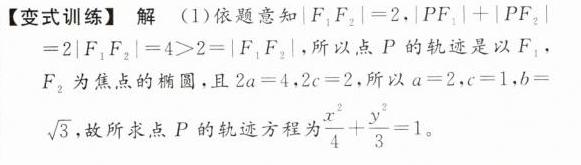 【变式训练】 解 (1)依题意知|F₁F₂|=2,|PF₁|+|PF₂|
=2|F₁F₂|=4>2=|F₁F₂|,所以点 P 的轨迹是以 F₁,
F₂ 为焦点的椭圆,且 2a=4,2c=2,所以 a=2,c=1,b=
√3,故所求点 P 的轨迹方程为x²/4+y²/3=1。